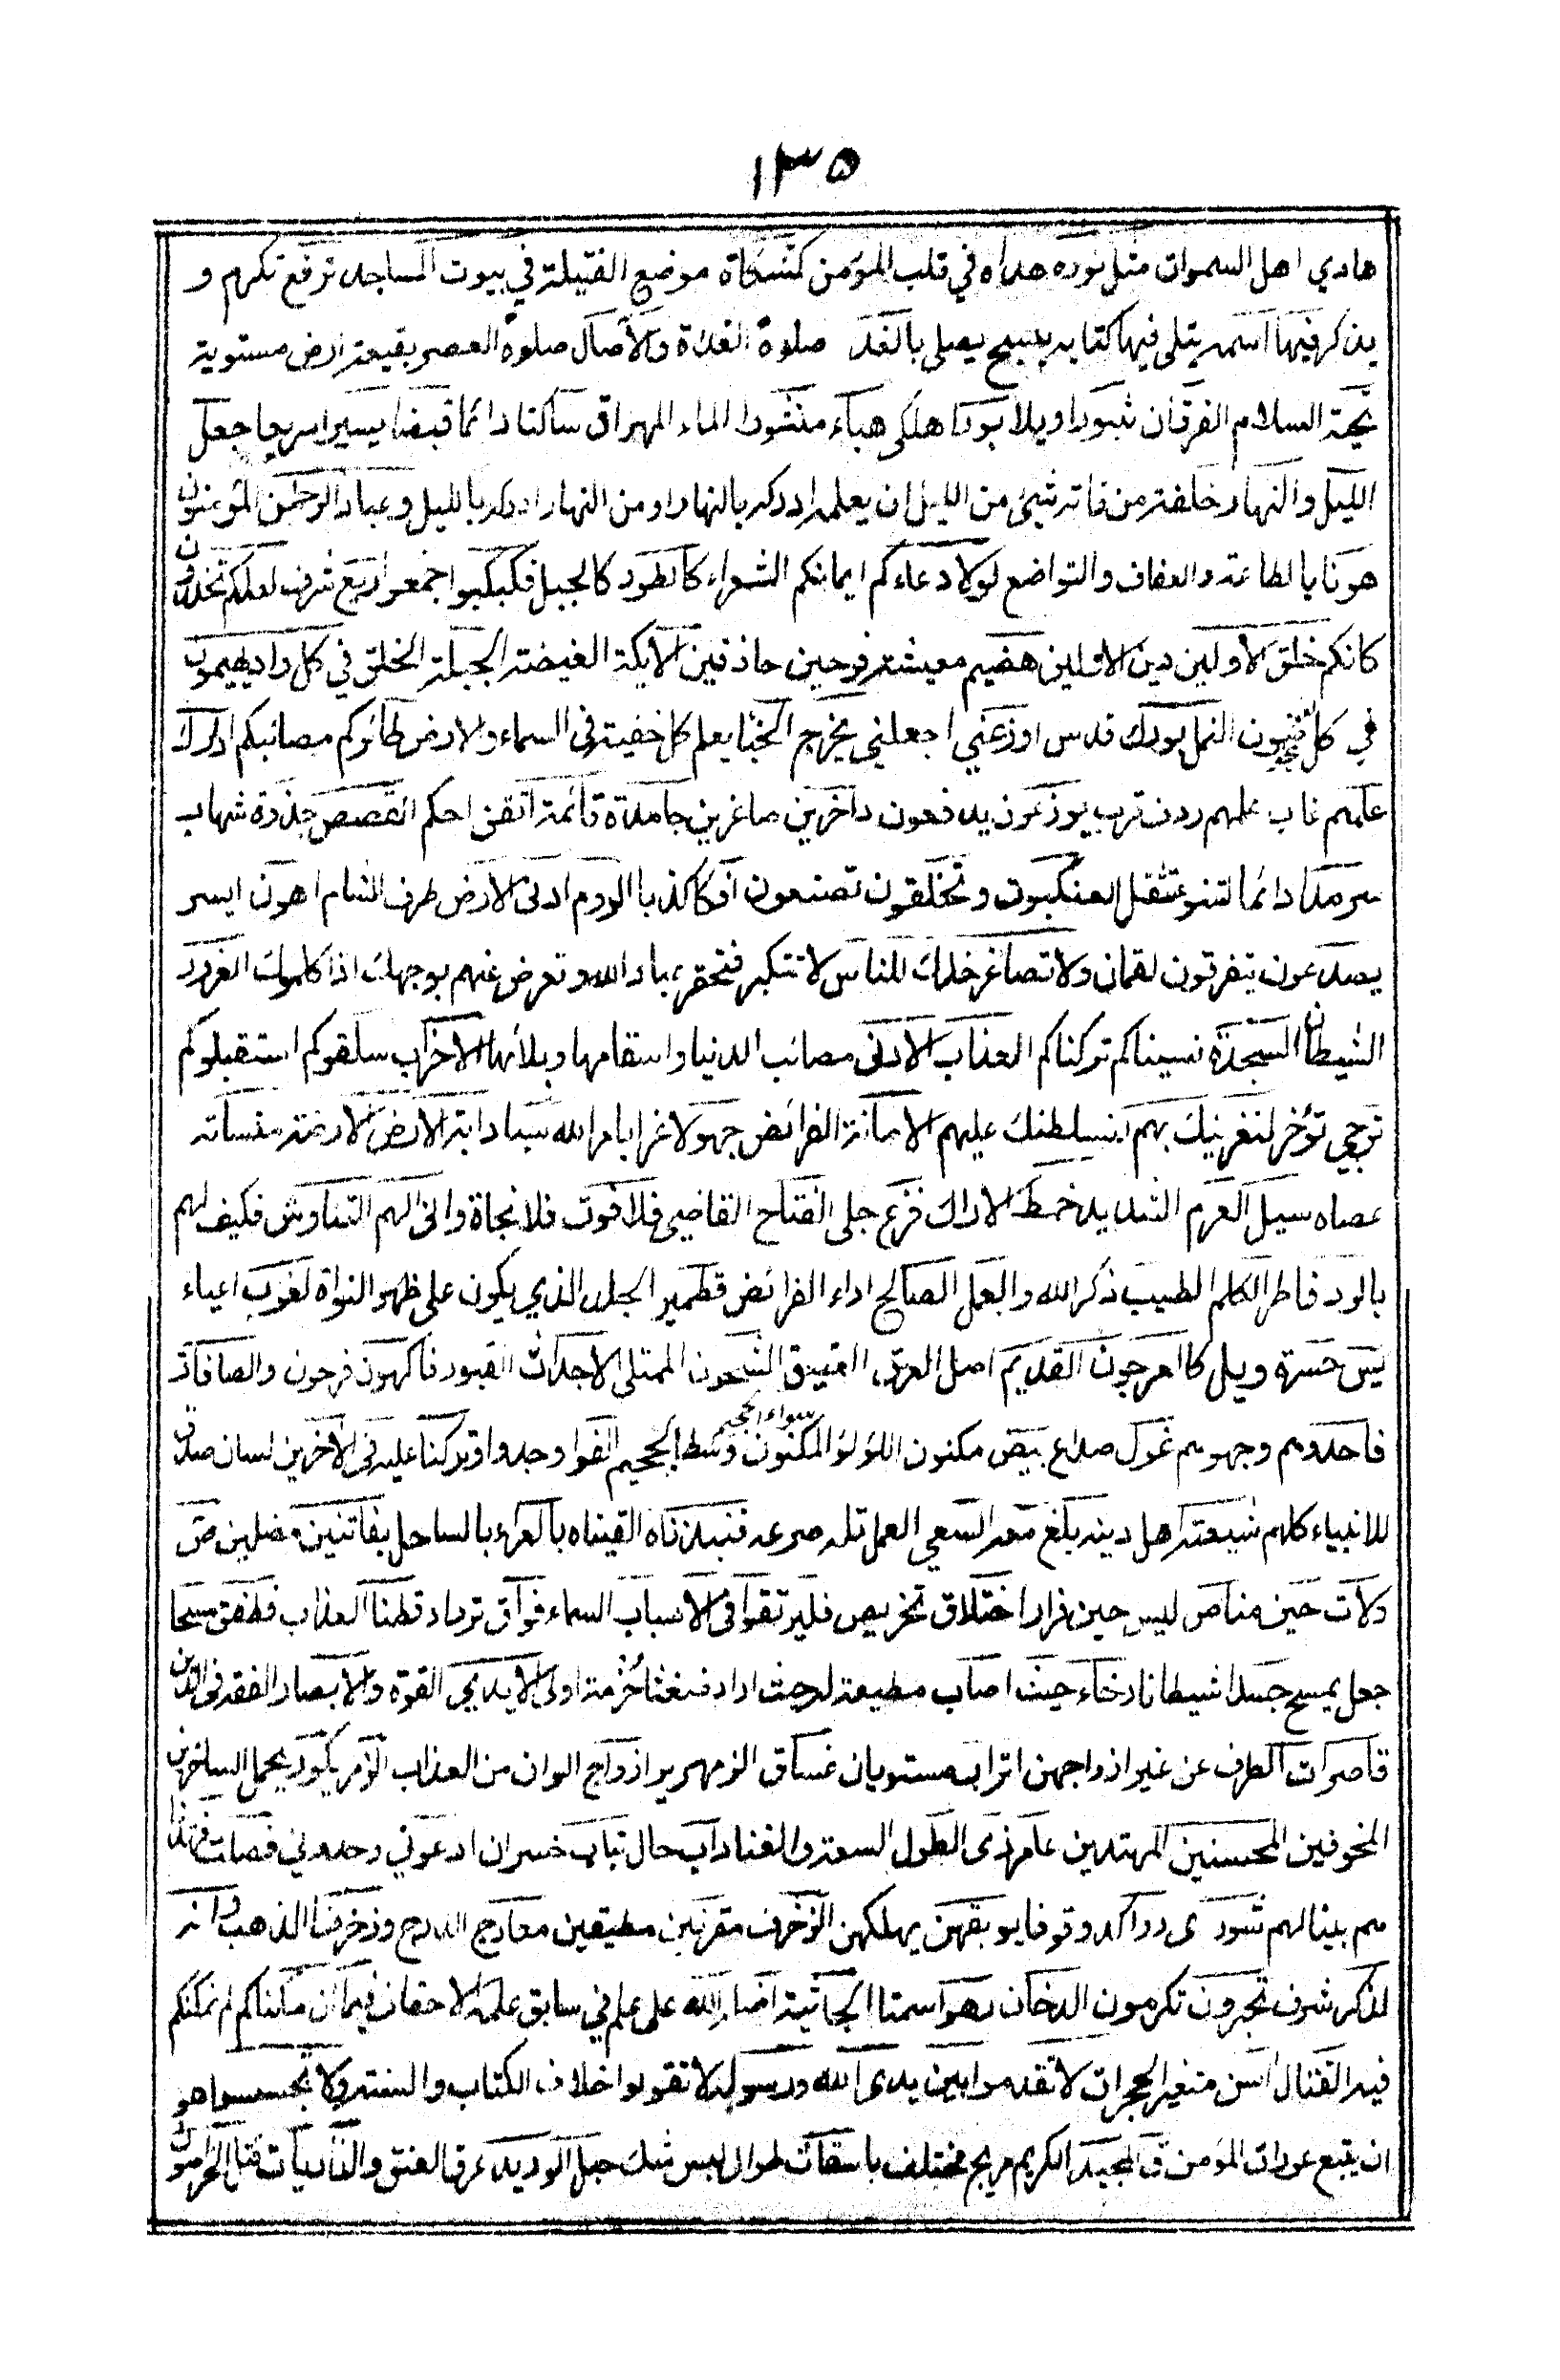 ١٣٥
هادي اهل السموات مثل نوره هداه في قلب المؤمن كمشكاة موضع الفتيلة في بيوت المساجد ترفع تكرم و
يذكر فيها اسمه يتلى فيها كتابه يسبح يصلى بالغد صلوة الغداة والآصال صلوة العصر بقيعة ارض مستوية
تحية السلام الفرقان ثبورا ويلا بورا هلكى هباء منثورا الماء المهراق ساكنا دائما قبضا يسيرا سريعا جعل
الليل والنهار خلفة من فاته شيئ من الليل ان يعلمه ادركه بالنهار او من النهار ادركه بالليل وعباد الرحمن المؤمنون
هونا بالطاعة والعفاف والتواضع لولا دعاءكم ايمانكم الشعراء كالطود كالجبل فكبكبوا جمعوا ريع شرف لعلكم تخلدون
كانكم خلق الاولين دين الاولين هضيم معيشة فرحين حاذقين الايكة الغيضة الجبلة الخلق في كل واد يهيمون
في كل فن يخوضون النمل بورك قدس اوزعني اجعلني يخرج الخبأ يعلم كل خفية في السماء والارض طائركم مصائبكم ادارك
علمهم غاب علمهم ردف قرب يوزعون يدفعون داخرين صاغرين جامدة قائمة اتقن احكم القصص جذوة شهاب
سرمدا دائما لتنوء تثقل العنكبوت وتخلقون تصنعون افكا كذبا الروم ادنى الارض طرف الشام اهون ايسر
يصدعون يتفرقون لقمان ولا تصاعر خدك للناس لا تتكبر فتحقر عباد الله وتعرض عنهم بوجهك اذا كلموك الغرور
الشيطان السجدة نسيناكم تركناكم العذاب الادنى مصائب الدنيا واسقامها وبلائها الاحزاب سلقوكم استقبلوكم
ترجي تؤخر لنغرينك بهم لنسلطنك عليهم الامانة الفرائض جهولا غرا بامر الله سبا دابة الارض الارضة منسأته
عصاه سيل العرم الشديد خمط الاراك فزع جلى الفتاح القاضي فلا فوت فلا نجاة وانى لهم التناوش فكيف لهم
بالرد فاطر الكلم الطيب ذكر الله والعمل الصالح اداء الفرائض قطمير الجلد الذي يكون على ظهر النواة لغوب اعياء
يس حسرة ويل كالعرجون القديم اصل العذق العتيق المشحون الممتلى الاجداث القبور فاكهون فرحون والصافات
فاهدوهم وجهوهم غول صداع بيض مكنون اللؤلؤ المكنون سواء الجحيم وسط الجحيم الفوا وجدوا وتركنا عليه في الآخرين لسان صدق
للانبياء كلهم شيعته اهل دينه بلغ معه السعي العمل تله صرعه فنبذناه القيناه بالعراء بالساحل بفاتنين مضلين ص
ولات حين مناص ليس حين فرار اختلاق تخريص فليرتقوا في الاسباب السماء فواق ترداد قطنا العذاب فطفق مسحا
جعل يمسح جسدا شيطانا رخاء حيث اصاب مطيعة له حيث اراد ضغثا حزمة اولى الايدي القوة والابصار الفقه في الدين
قاصرات الطرف عن غير ازواجهن اتراب مستويان غساق الزمهرير ازواج الوان من العذاب الزمر يكور يحمل الساخرين
المخوفين المحسنين المهتدين غافر ذى الطول السعة والغنا داب حال تباب خسران ادعوني وحدوني فصلت
هم بينا لهم شورى رواكد وقوفا يوبقهن يهلكهن الزخرف مقرنين مطيقين معارج الدرج وزخرفا الذهب وانه
لذكر شرف تحبرون تكرمون الدخان رهوا سمتا الجاثية اضله الله على علم في سابق علمه الاحقاف فيما ان مكناكم لم نمكنكم
فيه القتال آسن متغير الحجرات لا تقدموا بين يدى الله ورسوله لا تقولوا خلاف الكتاب والسنة ولا تجسسوا هو
ان يتبع عورات المؤمن ق المجيد الكريم مريج مختلف باسقات طوال لبس شك حبل الوريد عرق العنق والذاريات قتل الخراصون